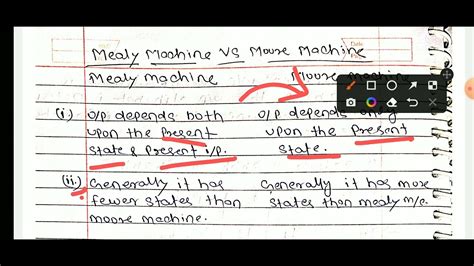 Mealy Machine VS Moore Machine
Mealy machine Moore machine
(i) O/P depends both O/P depends only
upon the Present upon the Present
state & Present i/p. state.
(ii) Generally it has Generally it has more
fewer states than states than mealy m/c.
moore machine.